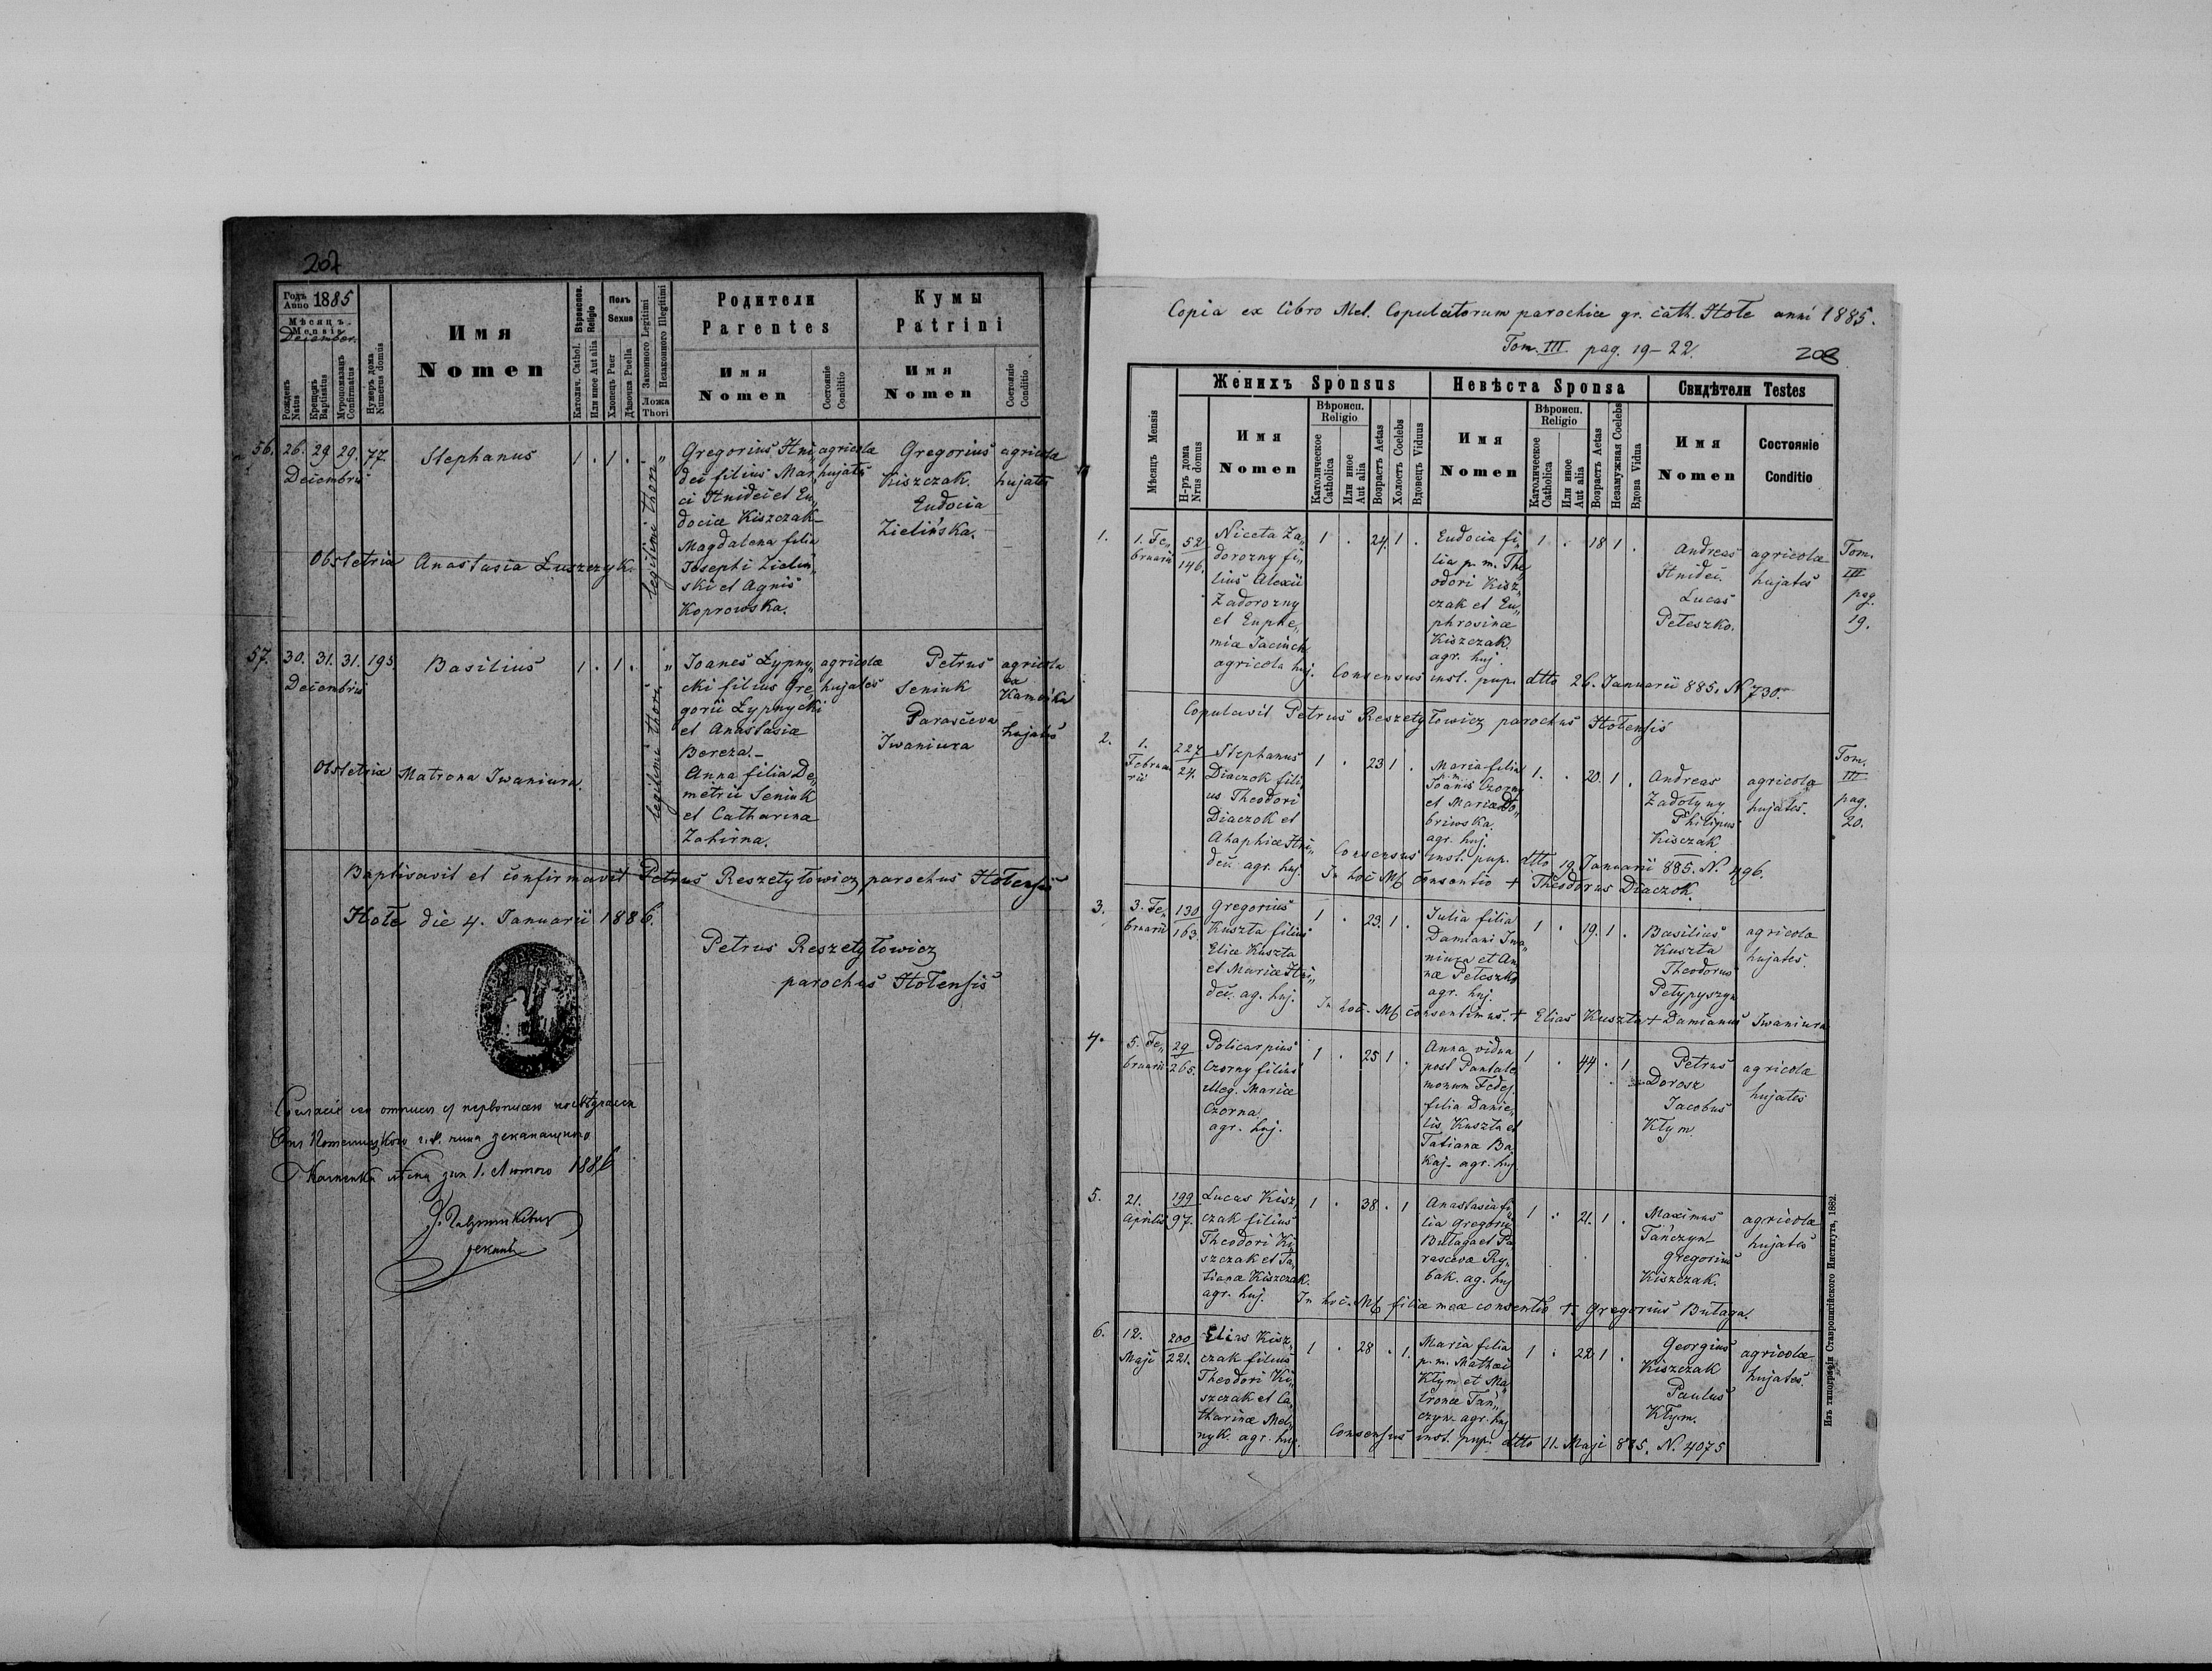 207
Годъ Anno 1885
Мѣсяцъ Mensis
December
Рожденъ Natus
Крещенъ Baptisatus
Мѵропомазанъ Confirmatus
Нумеръ дома Numerus domus
Имя
Nomen
Вѣроиспов. Religio
Католич. Cathol.
Или иное Aut alia
Полъ Sexus
Хлопецъ Puer
Дѣвочка Puella
Законного Legitimi
Незаконного Illegitimi
Ложа Thori
Родители
Parentes
Имя
Nomen
Состояніе Conditio
Кумы
Patrini
Имя
Nomen
Состояніе Conditio
56. 26. 29 29. 77.
Decembris
Stephanus
1 . 1 .
legitimi thori
Gregorius Hni,
deć filius Mar,
ci Hnideć et Eu,
dociæ Kiszczak
Magdalena filia
Josephi Zieliń,
ski et Agnis
Koprowska.
agricolæ
hujates
Gregorius
Kiszczak.
Eudocia
Zielińska.
agricolæ
hujates
Obstetrix Anastasia Łuszczyk.
57. 30. 31. 31. 195
Decembris
Basilius
1 . 1 .
legitimi thori
Joanes Łypny,
cki filius Gre,
gorii Łypnycki
et Anastasiæ
Bereza.
Anna filia De,
metrii Seniuk
et Catharina
Zahirna.
agricolæ
hujates
Petrus
Seniuk
Parasceva
Iwaniura
agricola
ex
Kamionka
hujates
Obstetrix Matrona Iwaniura.
Baptisavit et confirmavit Petrus Reszetyłowicz parochus Hołensis
Hołe die 4. Januarii 1886.
Petrus Reszetyłowicz
parochus Hołensis
1886
Copia ex libro Met. Copulatorum parochiæ gr. cath. Hołe anni 1885.
Tom. III pag. 19-22.
208
Мѣсяцъ Mensis
Женихъ Sponsus
Н-ръ дома Nrus domus
Имя
Nomen
Вѣроисп. Religio
Католическое Catholica
Или иное Aut alia
Возрастъ Aetas
Холостъ Coelebs
Вдовецъ Viduus
Невѣста Sponsa
Имя
Nomen
Вѣроисп. Religio
Католическое Catholica
Или иное Aut alia
Возрастъ Aetas
Незамужная Coelebs
Вдова Vidua
Свидѣтели Testes
Имя
Nomen
Состояніе
Conditio
1. 1. Fe,
bruarii
52
146.
Niceta Za,
dorozny fi,
lius Alexii
Zadorozny
et Euphe,
miæ Jacinck
agricola huj.
1 . 24. 1 .
Eudocia fi,
lia p. m. The
odori Kisz,
czak et Eu,
phrosinæ
Kiszczak.
agr. huj.
1 . 18 1 .
Andreas
Hnideć.
Lucas
Peteszko.
agricolæ
hujates
Tom.
III
pag.
19.
Consensus inst. pup. dtto 26. Januarii 885. N 730.
Copulavit Petrus Reszetyłowicz parochus Hołensis
2. 1.
Februa
rii
227
24.
Stephanus
Diaczok fili,
us Theodori
Diaczok et
Ahaphiæ Hni,
deć. agr. huj.
1 . 23 1 .
Maria filia
p. m.
Joanis Czorny
et Mariæ Do,
briwska.
agr. huj.
1 . . 20. 1 .
Andreas
Zadolyny
Philipus
Kisczak
agricolæ
hujates.
Tom.
III
pag.
20.
Consensus inst. pup. dtto 19. Januarii 885. N. 496.
In hoc Mf consentio + Theodorus Diaczok.
3. 3. Fe,
bruarii
130
163.
Gregorius
Kuszta filius
Eliæ Kuszta
et Mariæ Hni,
deć. ag. huj.
1 . 23. 1 .
Julia filia
Damiani Iwa,
niura et An,
næ Peteszko
agr. huj.
1 . 19. 1 .
Basilius
Kuszta
Theodorus
Petypyszyn
agricolæ
hujates.
In hoc. Mf consentimus. + Elias Kuszta + Damianus Iwaniura
4. 5. Fe,
bruarii
29
265.
Policarpius
Czorny filius
illeg. Mariæ
Czorna.
agr. huj.
1 . 25 1 .
Anna vidua
post Pantale
monum Fedej.
filia Danie,
lis Kuszta et
Tatiana Ba,
kaj. agr. huj
1 . 44 . 1
Petrus
Dorosz
Jacobus
Kłym.
agricolæ
hujates
5. 21.
Aprilis
199
97.
Lucas Kisz,
czak filius
Theodori Ki,
szczak et Ta,
tianæ Kiszczak.
agr. huj.
1 . 38 . 1
Anastasia fi,
lia Gregorii
Butaga et Pa,
rascevæ Ry,
bak. ag. huj
1 . 21. 1 .
Maximus
Tańczyn
Gregorius
Kiszczak.
agricolæ
hujates
In hoc. Mf filiæ meæ consentio +. Gregorius Butaga.
6. 12.
Maji
200
221.
Elias Kisz,
czak filius
Theodori Ki,
szczak et Ca,
tharinæ Mel,
nyk. agr. huj.
1 . 28 . 1.
Maria filia
p. m. Mathæi
Kłym et Ma,
tronæ Tań,
czyn. agr. huj
1 . 22 1 .
Georgius
Kiszczak
Paulus
Kłym.
agricolæ
hujates.
Consensus inst. pup. dtto 11. Maji 885. N. 4075
Изъ типографіи Ставропигійского Института, 1882.